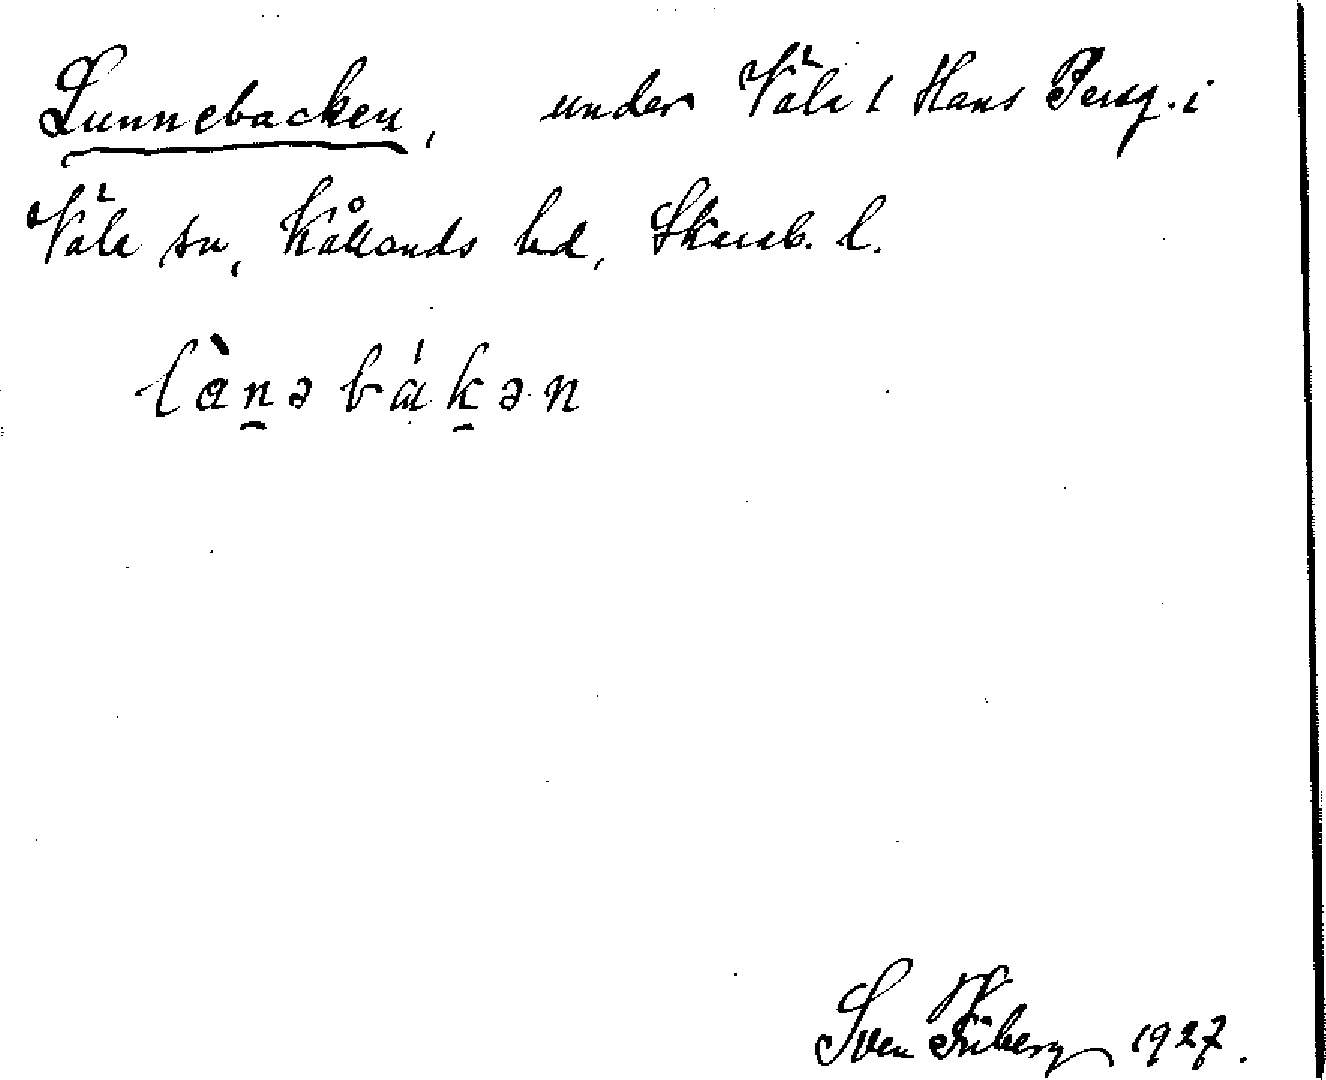 Lunnebacken, under Väla 1 Hans Persg. i
Väla sn, Kållands hd, Skarab. l.
lànəbákən
Sven Friberg 1927.